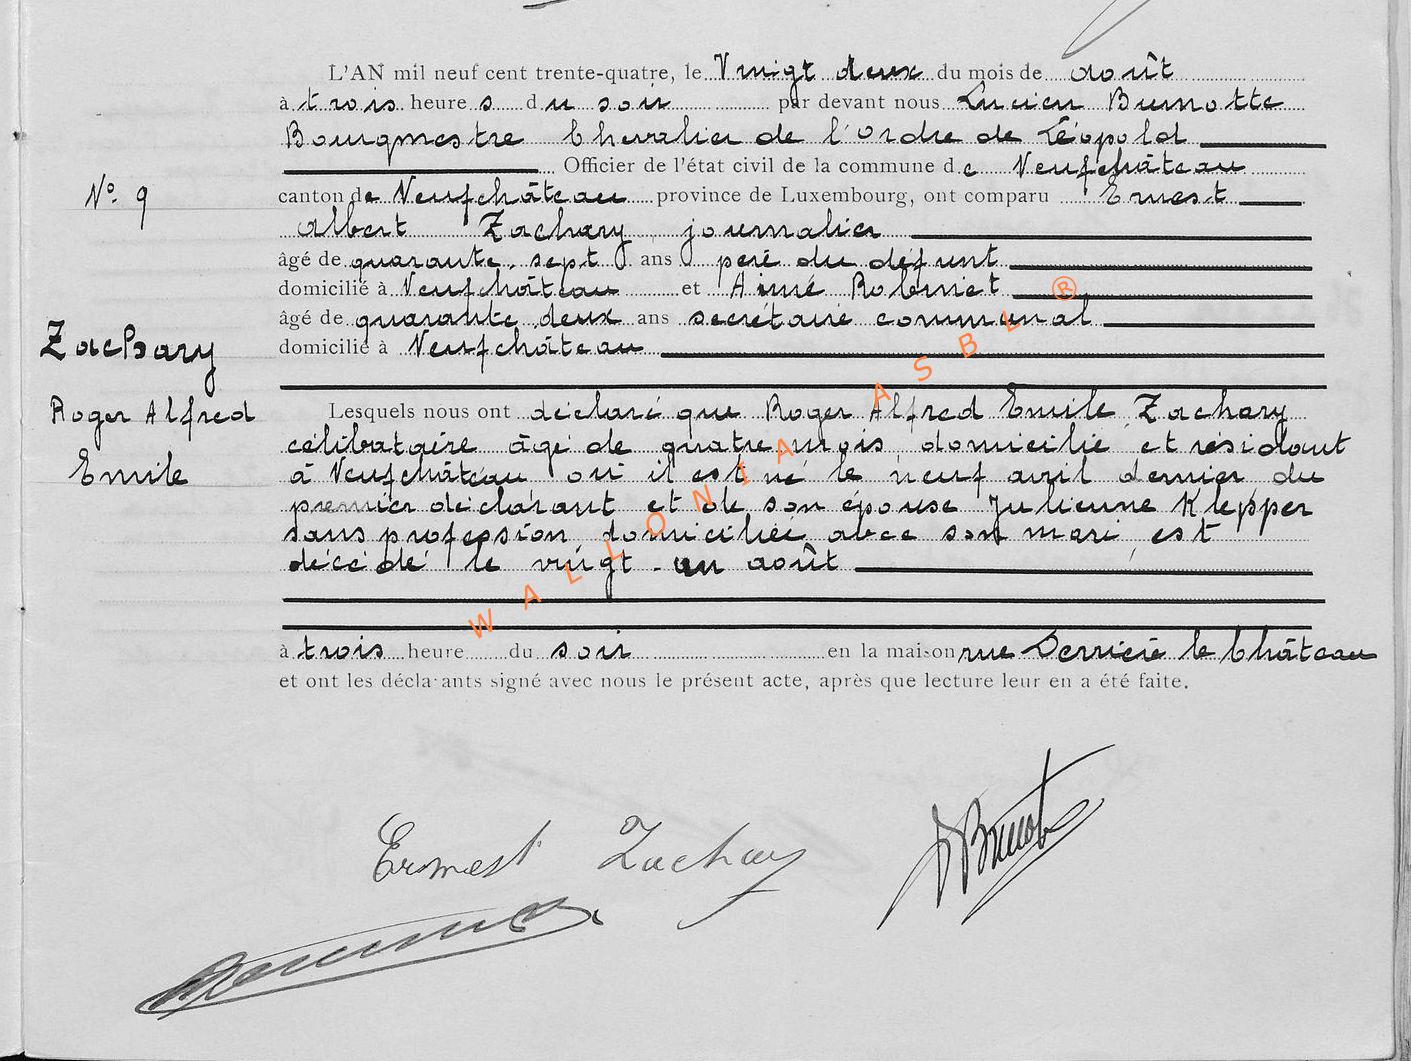 L'AN mil neuf cent trente-quatre, le Vingt deux du mois de août
à trois heure s du soir par devant nous Lucien Bunotte
Bourgmestre Chevalier de l'Ordre de Léopold
Officier de l'état civil de la commune de Neufchâteau
N° 9
canton de Neufchâteau province de Luxembourg, ont comparu Ernest
Albert Zachary journalier
âgé de quarante sept ans père du défunt
domicilié à Neufchâteau et Aimé Robinet
âgé de quarante deux ans secrétaire communal
domicilié à Neufchâteau
Zachary
Roger Alfred
Emile
Lesquels nous ont déclaré que Roger Alfred Emile Zachary
célibataire âgé de quatre mois, domicilié et résidant
à Neufchâteau où il est né le neuf avril dernier du
premier déclarant et de son épouse Julienne Klepper
sans profession domiciliée avec son mari, est
décédé le vingt-un août
à trois heure du soir en la maison rue Derrière le Château
et ont les déclarants signé avec nous le présent acte, après que lecture leur en a été faite.
Ernest Zachary
WALLONIA ASBL ®